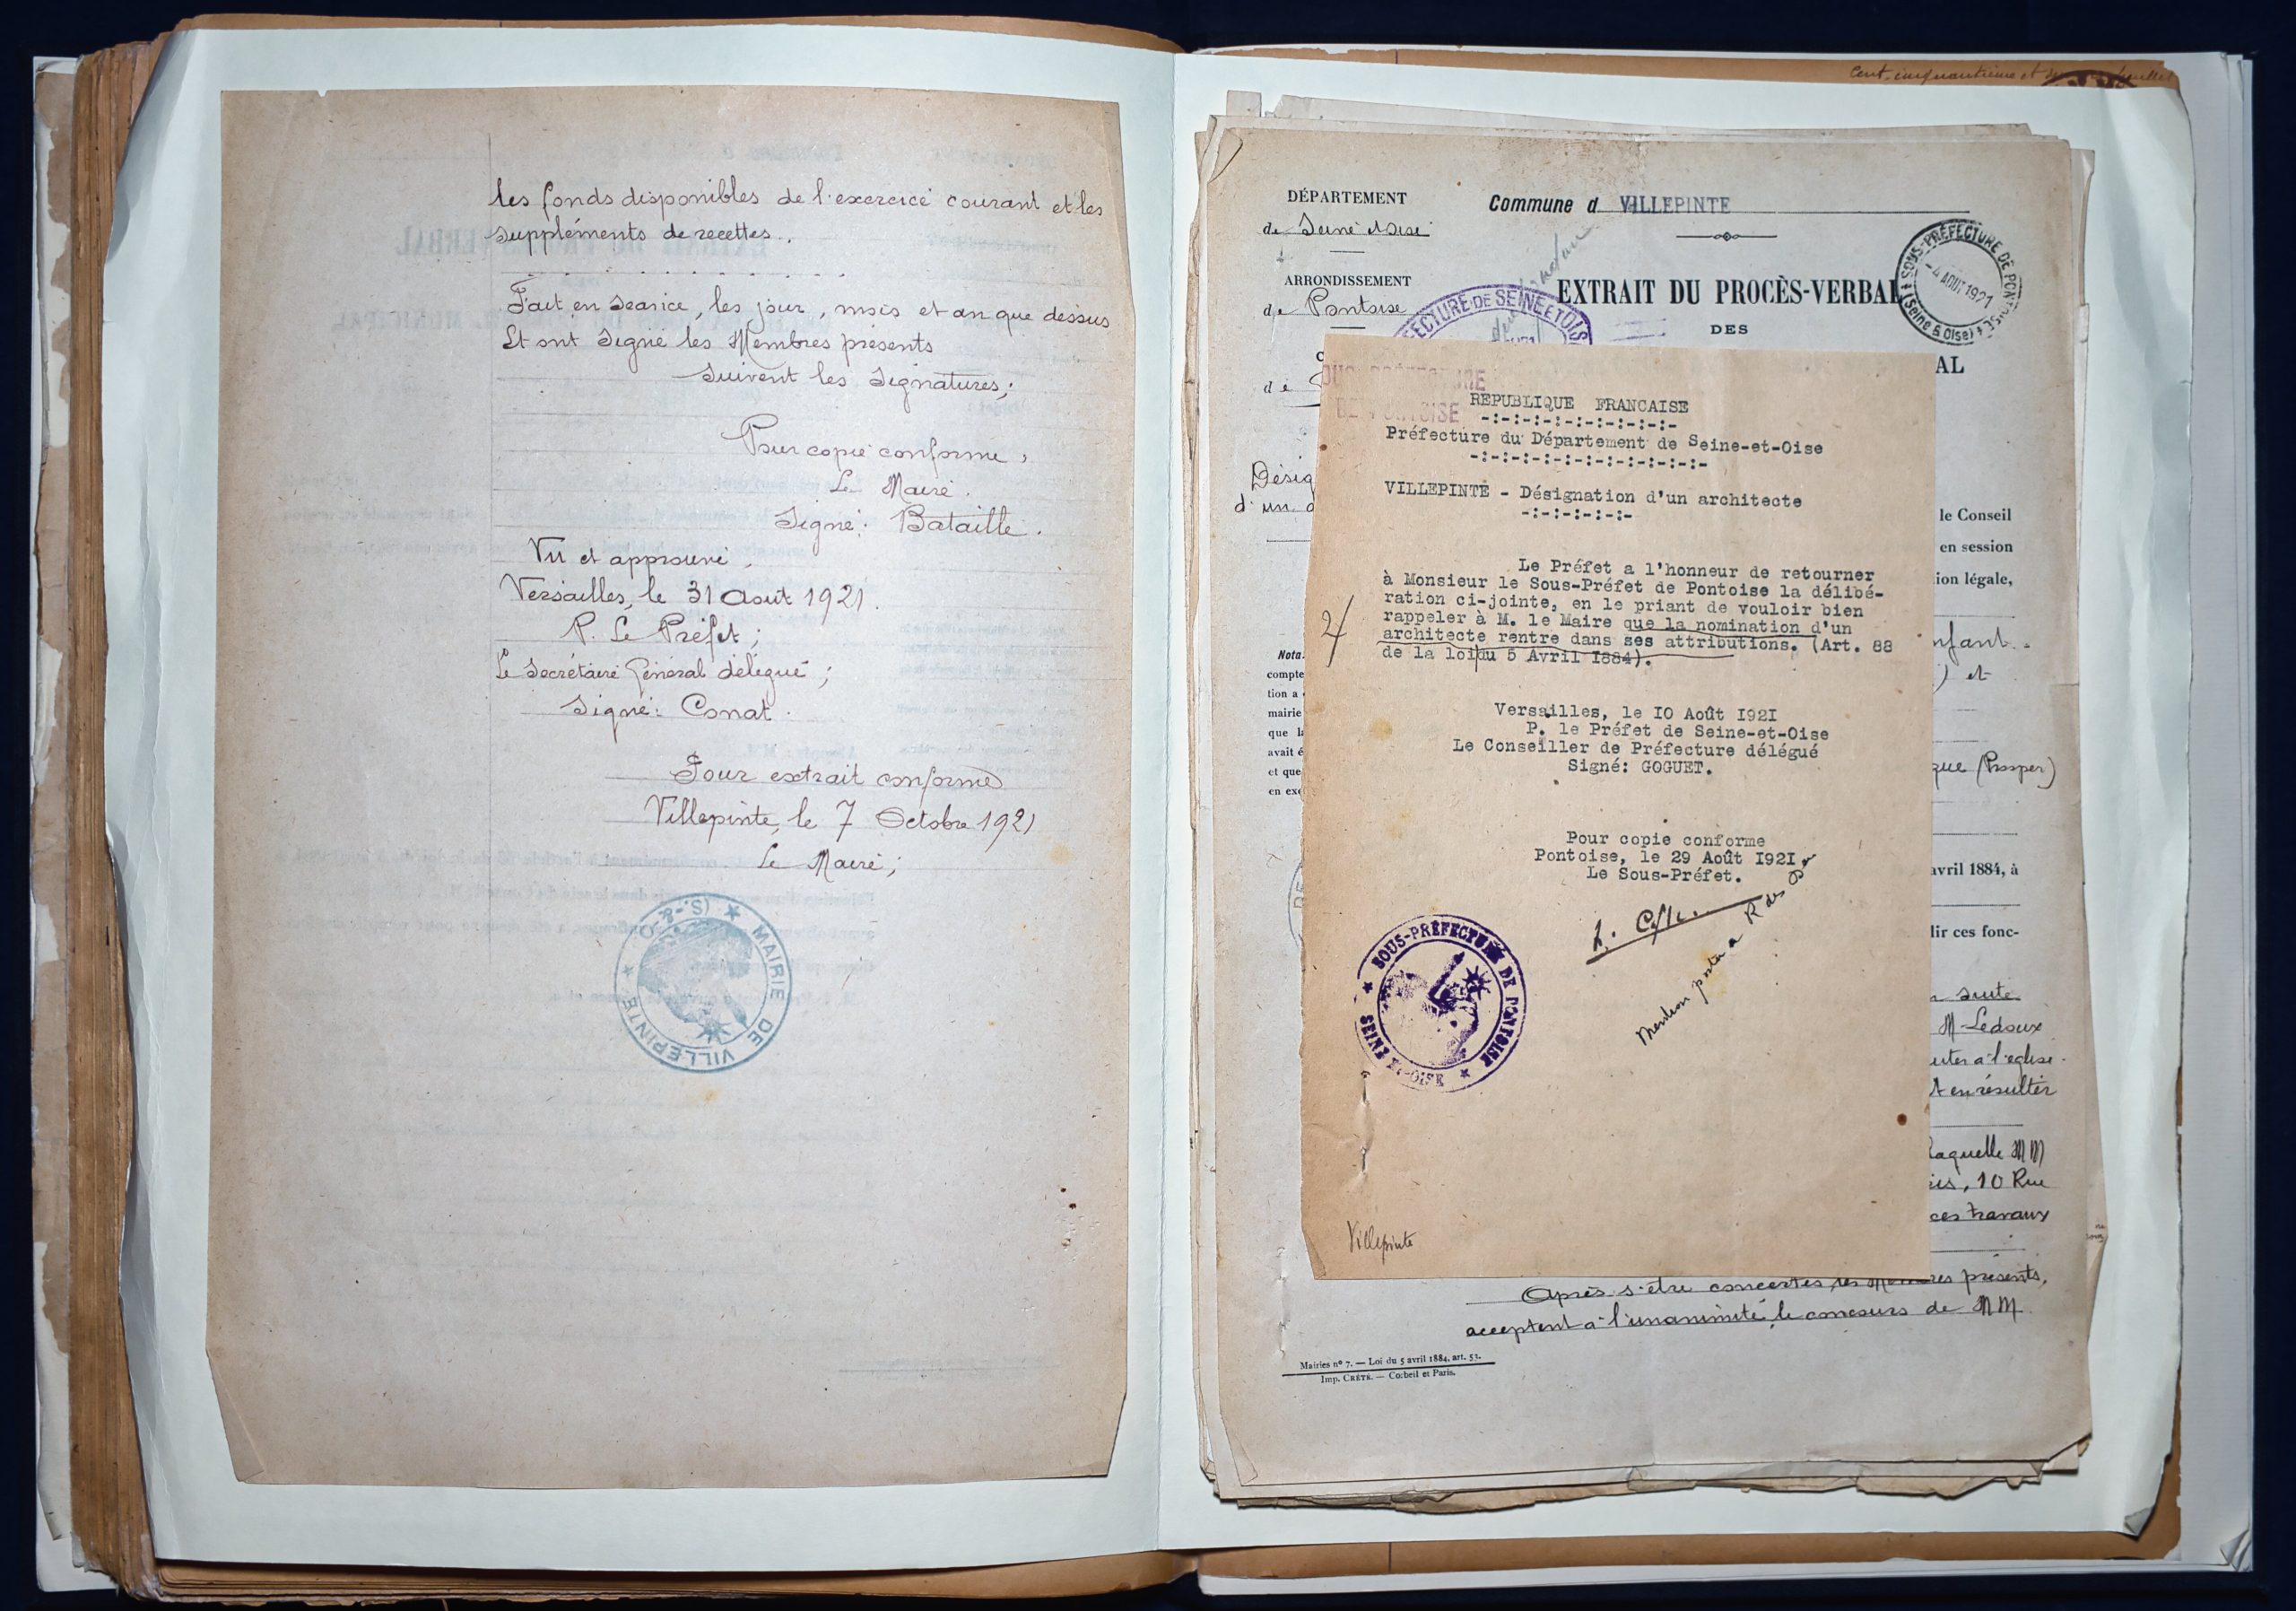 les fonds disponibles de l'exercice courant et les
suppléments de recettes.
Fait en séance, les jour, mois et an que dessus
Et ont signé les Membres présents
Suivent les Signatures;
Pour copie conforme,
Le Maire.
Signé: Bataille.
Vu et approuvé,
Versailles, le 31 Août 1921.
P. Le Préfet;
Le Secrétaire Général délégué;
Signé: Conat.
Pour extrait conforme
Villepinte, le 7 Octobre 1921
Le Maire;
MAIRIE DE VILLEPINTE (S.-&-O)
Cent cinquantième et feuillet
DÉPARTEMENT
de Seine et Oise
Commune d VILLEPINTE
ARRONDISSEMENT
de Pontoise
EXTRAIT DU PROCÈS-VERBAL
DES
AL
SOUS-PRÉFECTURE DE PONTOISE (Seine & Oise)
-4 AOUT 1921
FECTURE DE SEINE ET OIS
de
Désig
d'un a
le Conseil
en session
ion légale,
nfant.
) et
que (Prosper)
avril 1884, à
lir ces fonc-
suite
M Ledoux
uter à l'église.
t en résulter
laquelle MM
is, 10 Rue
ces travaux
Nota.
compte
tion a
mairie
que l
avait é
et que
en exe
DE PONTOISE
RÉPUBLIQUE FRANCAISE
-:-:-:-:-:-:-:-:-:-
Préfecture du Département de Seine-et-Oise
-:-:-:-:-:-:-:-:-:-:-:-
VILLEPINTE - Désignation d'un architecte
-:-:-:-:-:-
Le Préfet a l'honneur de retourner
à Monsieur le Sous-Préfet de Pontoise la délibé-
ration ci-jointe, en le priant de vouloir bien
rappeler à M. le Maire que la nomination d'un
architecte rentre dans ses attributions. (Art. 88
de la loi du 5 Avril I884).
2
Versailles, le I0 Août I92I
P. le Préfet de Seine-et-Oise
Le Conseiller de Préfecture délégué
Signé: GOGUET.
Pour copie conforme
Pontoise, le 29 Août I92I
Le Sous-Préfet.
Mention portée a R des
SOUS-PRÉFECTURE DE PONTOISE
SEINE & OISE
Villepinte
Après s'être concertés, les Membres présents,
acceptent à l'unanimité le concours de MM
Mairies nº 7. — Loi du 5 avril 1884, art. 53.
Imp. CRÉTÉ. — Corbeil et Paris.